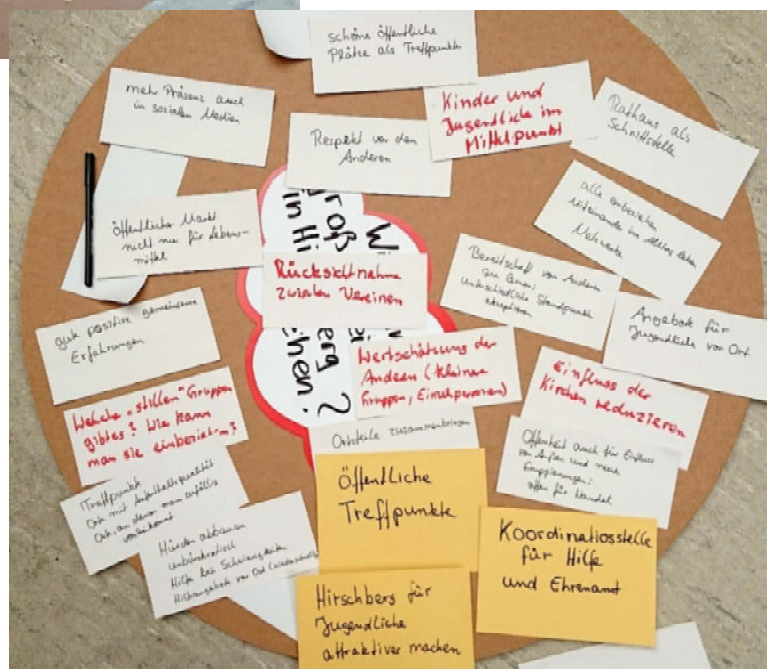 schöne öffentliche
Plätze als Treffpunkt
mehr Präsenz auch
in sozialen Medien
Kinder und
Jugendliche im
Mittelpunkt
Rathaus als
Schnittstelle
Respekt vor dem
Anderen
alle einbeziehen
Miteinander im Alltag leben
Netzwerke
öffentlicher Markt
nicht nur für Lebens-
mittel
groß
in Hi
berg ?
chen?
Rücksichtnahme
zwischen Vereinen
Bereitschaft von Anderen
zu lernen/
unterschiedliche Standpunkte
akzeptieren
Angebote für
Jugendliche vor Ort
gute positive gemeinsame
Erfahrungen
Wertschätzung der
Anderen (kleiner
Gruppen, Einzelpersonen)
Einfluss der
Kirchen reduzieren
Welche "stillen" Gruppen
gibt es? Wie kann
man sie einbeziehen?
Ortsteile zusammenbringen
Offenheit auch für Einfluss
von außen und neue
Gruppierungen:
offen für Wandel
Treffpunkte
Ort mit Aufenthaltsqualität
Ort, an denen man zufällig
vorbeikommt
Öffentliche
Treffpunkte
Hürden abbauen
unbürokratisch
Hilfe bei Schwierigkeiten
Hilfsangebote vor Ort
Koordinatiosstelle
für Hilfe
und Ehrenamt
Hirschberg für
Jugendliche
attraktiver machen